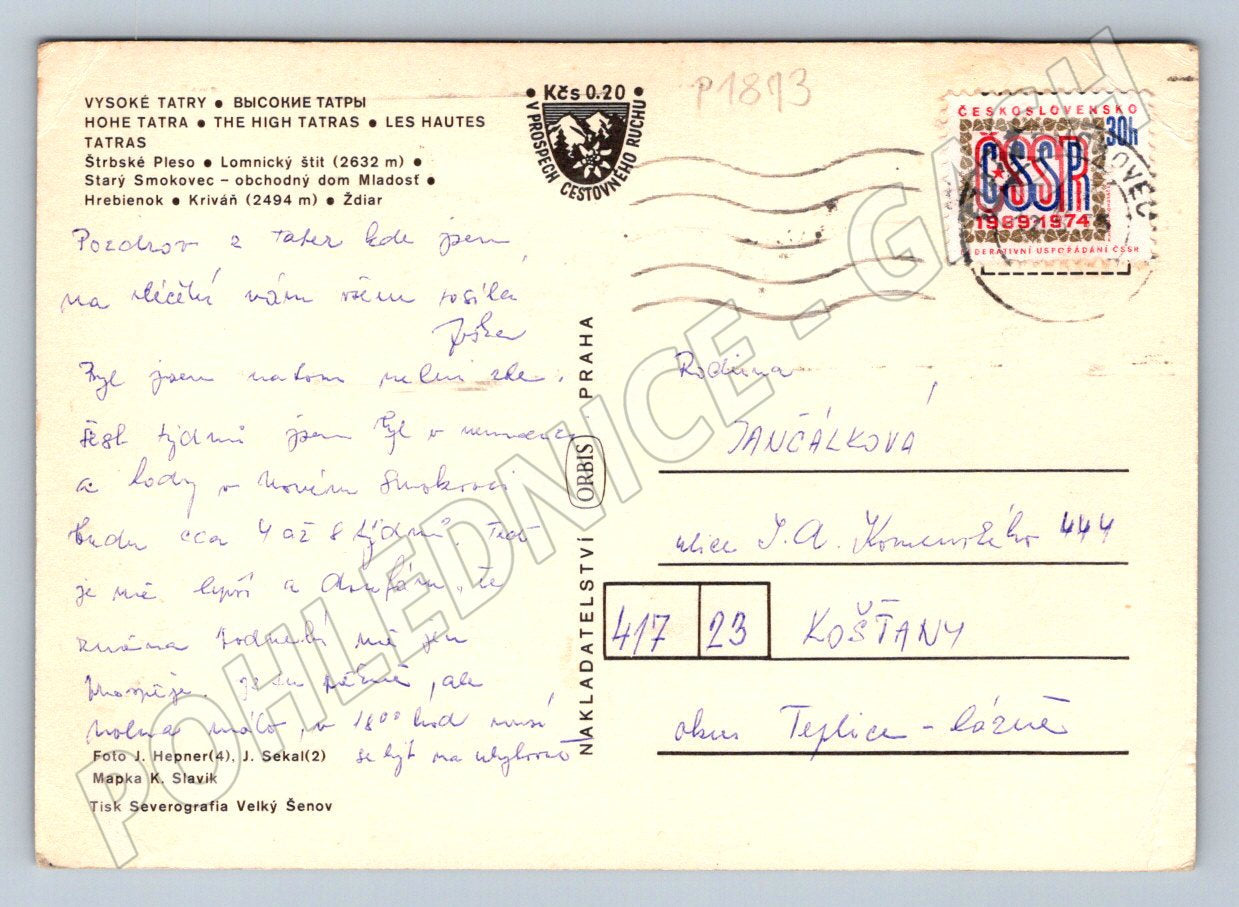 VYSOKÉ TATRY • ВЫСОКИЕ ТАТРЫ
HOHE TATRA • THE HIGH TATRAS • LES HAUTES
TATRAS
Štrbské Pleso • Lomnický štít (2632 m) •
Starý Smokovec – obchodný dom Mladosť •
Hrebienok • Kriváň (2494 m) • Ždiar
• Kčs 0.20 •
V PROSPECH CESTOVNÉHO RUCHU
P1873
ČESKOSLOVENSKO
30h
ČSSR
1969-1974
FEDERATIVNÍ USPOŘÁDÁNÍ ČSSR
Pozdrov z Tater kde jsem
na léčění vám všem posílá
Byl jsem na tom velmi zle.
šest týdnů jsem byl v nemocnici
a tady v Novém Smokovci
budu cca 4 až 8 týdnů. Teď
je mě lepší a doufám, že
změna podnebí mě jen
prospěje. je tu krásně, ale
volna málo, v 18⁰⁰ hod musí
se být na ubytovně
Foto J. Hepner(4), J. Sekal(2)
Mapka K. Slavik
Tisk Severografia Velký Šenov
NAKLADATELSTVÍ ORBIS PRAHA
Rodina
JANČÁLKOVÁ
ulice J. A. Komenského 444
417 23 KOŠŤANY
okres Teplice - lázně
POHLEDNICE - GALCH